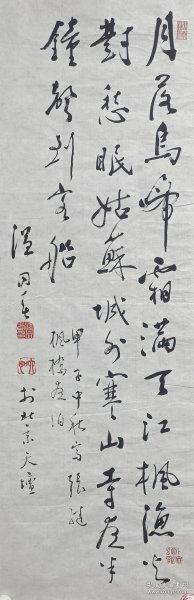 月落烏啼霜滿天江楓漁火
對愁眠姑蘇城外寒山寺夜半
鐘聲到客船
甲子中秋寫張繼
楓橋夜泊
於北京天壇
溫同